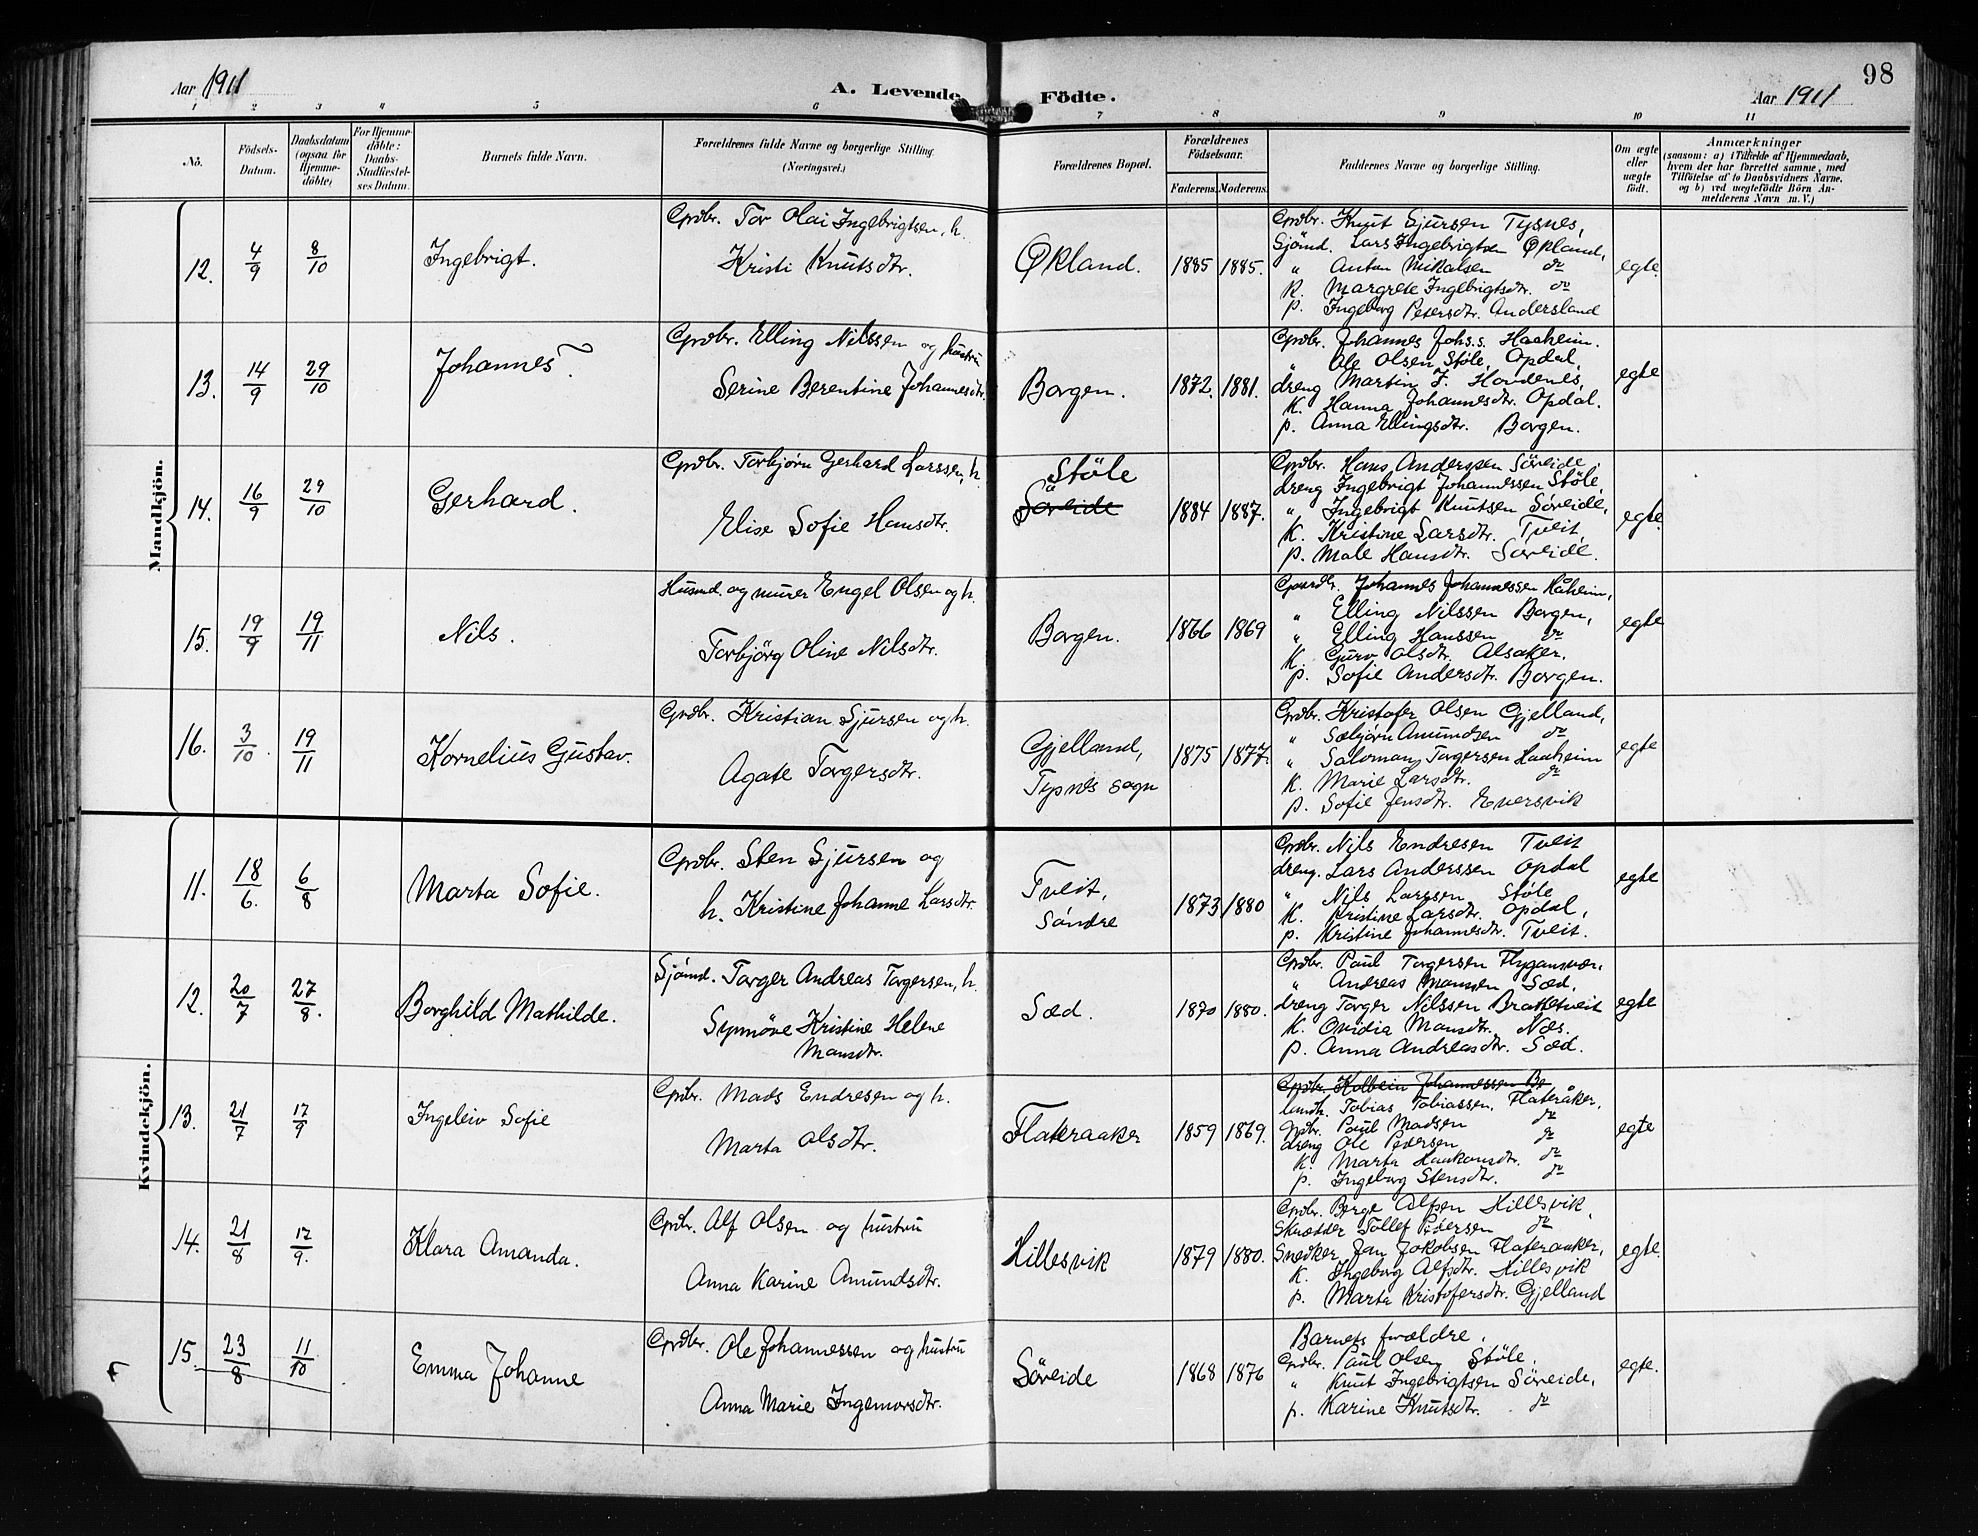 98
Aar 1911
A. Levende Födte.
Aar 1911
1 2 3 4 5 6 7 8 9 10 11
No.
Födsels-Datum.
Daabsdatum (ogsaa for Hjemme-döbte)
For Hjemme-döbte: Daabs-Stadfæstel-ses Datum.
Barnets fulde Navn.
Forældrenes fulde Navne og borgerlige Stilling (Næringsvei.)
Forældrenes Bopæl.
Forældrenes Födselsaar.
Faderens. Moderens.
Faddernes Navne og borgerlige Stilling.
Om ægte eller uægte födt.
Anmærkninger
(saasom: a) i Tilfælde af Hjemmedaab, hvem der har forrettet samme, med Tilföielse af to Daabsvidners Navne. og b) ved uægtefödte Börn An-melderens Navn m. V.)
Mandkjön.
12. 4/9 8/10 Ingebrigt.
Grdbr. Tor Olai Ingebrigtsen, h.
Kristi Knutsdtr.
Økland. 1885 1885.
Grdbr. Knut Sjursen Tysnes,
Sjömd. Lars Ingebrigtsen Økland,
" Anton Mikalsen do
k. Margrete Ingebrigtsdtr. do
p. Ingeborg Pedersdtr. Andersland
egte.
13. 14/9 29/10 Johannes.
Grdbr. Elling Nilssen og hustru
Serine Berentine Johannesdtr.
Borgen. 1872. 1881.
Grdbr. Johannes Johs.s. Haaheim.
" Ole Olsen Støle, Opdal,
dreng Martin J. Hovdenes,
k. Hanna Johannesdtr. Opdal.
p. Anna Ellingsdtr. Borgen.
egte
14. 16/9 29/10 Gerhard.
Grdbr. Torbjørn Gerhard Larssen, h.
Elise Sofie Hansdtr.
Støle
Söreide
1884 1887.
Grdbr. Hans Anderssen Söreide,
dreng Ingebrigt Johannessen Støle,
" Ingebrigt Knutsen Søreide,
k. Kristine Larsdtr. Tveit,
p. Male Hansdtr. Søreide.
egte.
15. 19/9 19/11 Nils.
Husmd. og murer Engel Olsen og h.
Torbjörg Oline Nilsdtr.
Borgen. 1866 1869
Gaardbr. Johannes Johannessen Håheim,
" Elling Nilssen Borgen,
" Elling Hanssen do
k. Guro Olsdtr. Alsaker.
p. Sofie Andersdtr. Borgen.
egte
16. 3/10 19/11 Kornelius Gustav.
Grdbr. Kristian Sjursen og h.
Agate Torgersdtr.
Gjelland,
Tysnes sogn
1875 1877.
Grdbr. Kristofer Olsen Gjelland,
" Sæbjørn Amundsen do
" Salomon Torgersen Haaheim
k. Marie Larsdtr. do
p. Sofie Jensdtr. Eversvik
egte
Kvindekjön.
11. 18/6. 6/8 Marta Sofie.
Grdbr. Sten Sjursen og
h. Kristine Johanne Larsdtr.
Tveit,
Söndre
1873 1880
Grdbr. Nils Endresen Tveit
dreng. Lars Anderssen Opdal
" Nils Larssen Støle
k. Kristine Larsdtr. Opdal,
p. Kristine Johannesdtr. Tveit.
egte
12. 20/7 27/8. Borghild Mathilde.
Sjömd. Torger Andreas Torgersen, h.
Synnöve Kristine Helene
Mansdtr.
Sæd. 1870 1880.
Grdbr. Paul Torgersen Flygansvær.
" Andreas Manssen Sæd,
dreng Torger Nilssen Brakketveit
k. Ovidia Mansdtr. Næs.
p. Anna Andreasdtr. Sæd.
egte
13. 21/7 17/9 Ingeleiv Sofie
Grdbr. Mads Endresen og h.
Marta Olsdtr.
Flateraaker 1859 1869.
Grdbr. Kolbein Johannessen Bo
landh. Tobias Tobiassen, Flateråker,
Grdbr. Paul Madsen do
dreng Ole Pedersen do
k. Marta Haakonsdtr. do
p. Ingeborg Stensdtr. do
egte
14. 21/8 17/9. Klara Amanda.
Grdbr. Alf Olsen og hustru
Anna Karine Amundsdtr.
Hillesvik 1879 1880.
Grdbr. Berge Alfsen Hillesvik,
Skrædder Tollef Pedersen do
Snedker Jan Jakobsen Flateraaker,
k. Ingeborg Alfsdtr. Hillesvik
p. Marta Kristofersdtr. Gjelland
egte.
15. 23/8 11/10 Emma Johanne
Grdbr. Ole Johannessen og hustru
Anna Marie Ingemorsdtr.
Söreide 1868 1876
Barnets forældre.
Grdbr. Paul Olsen Støle.
" Knut Ingebrigtsen Søreide,
p. Karine Knutsdtr. do
egte.